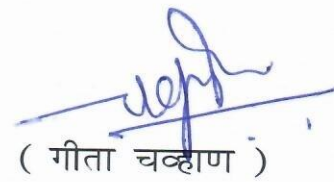 ( गीता चव्हाण )